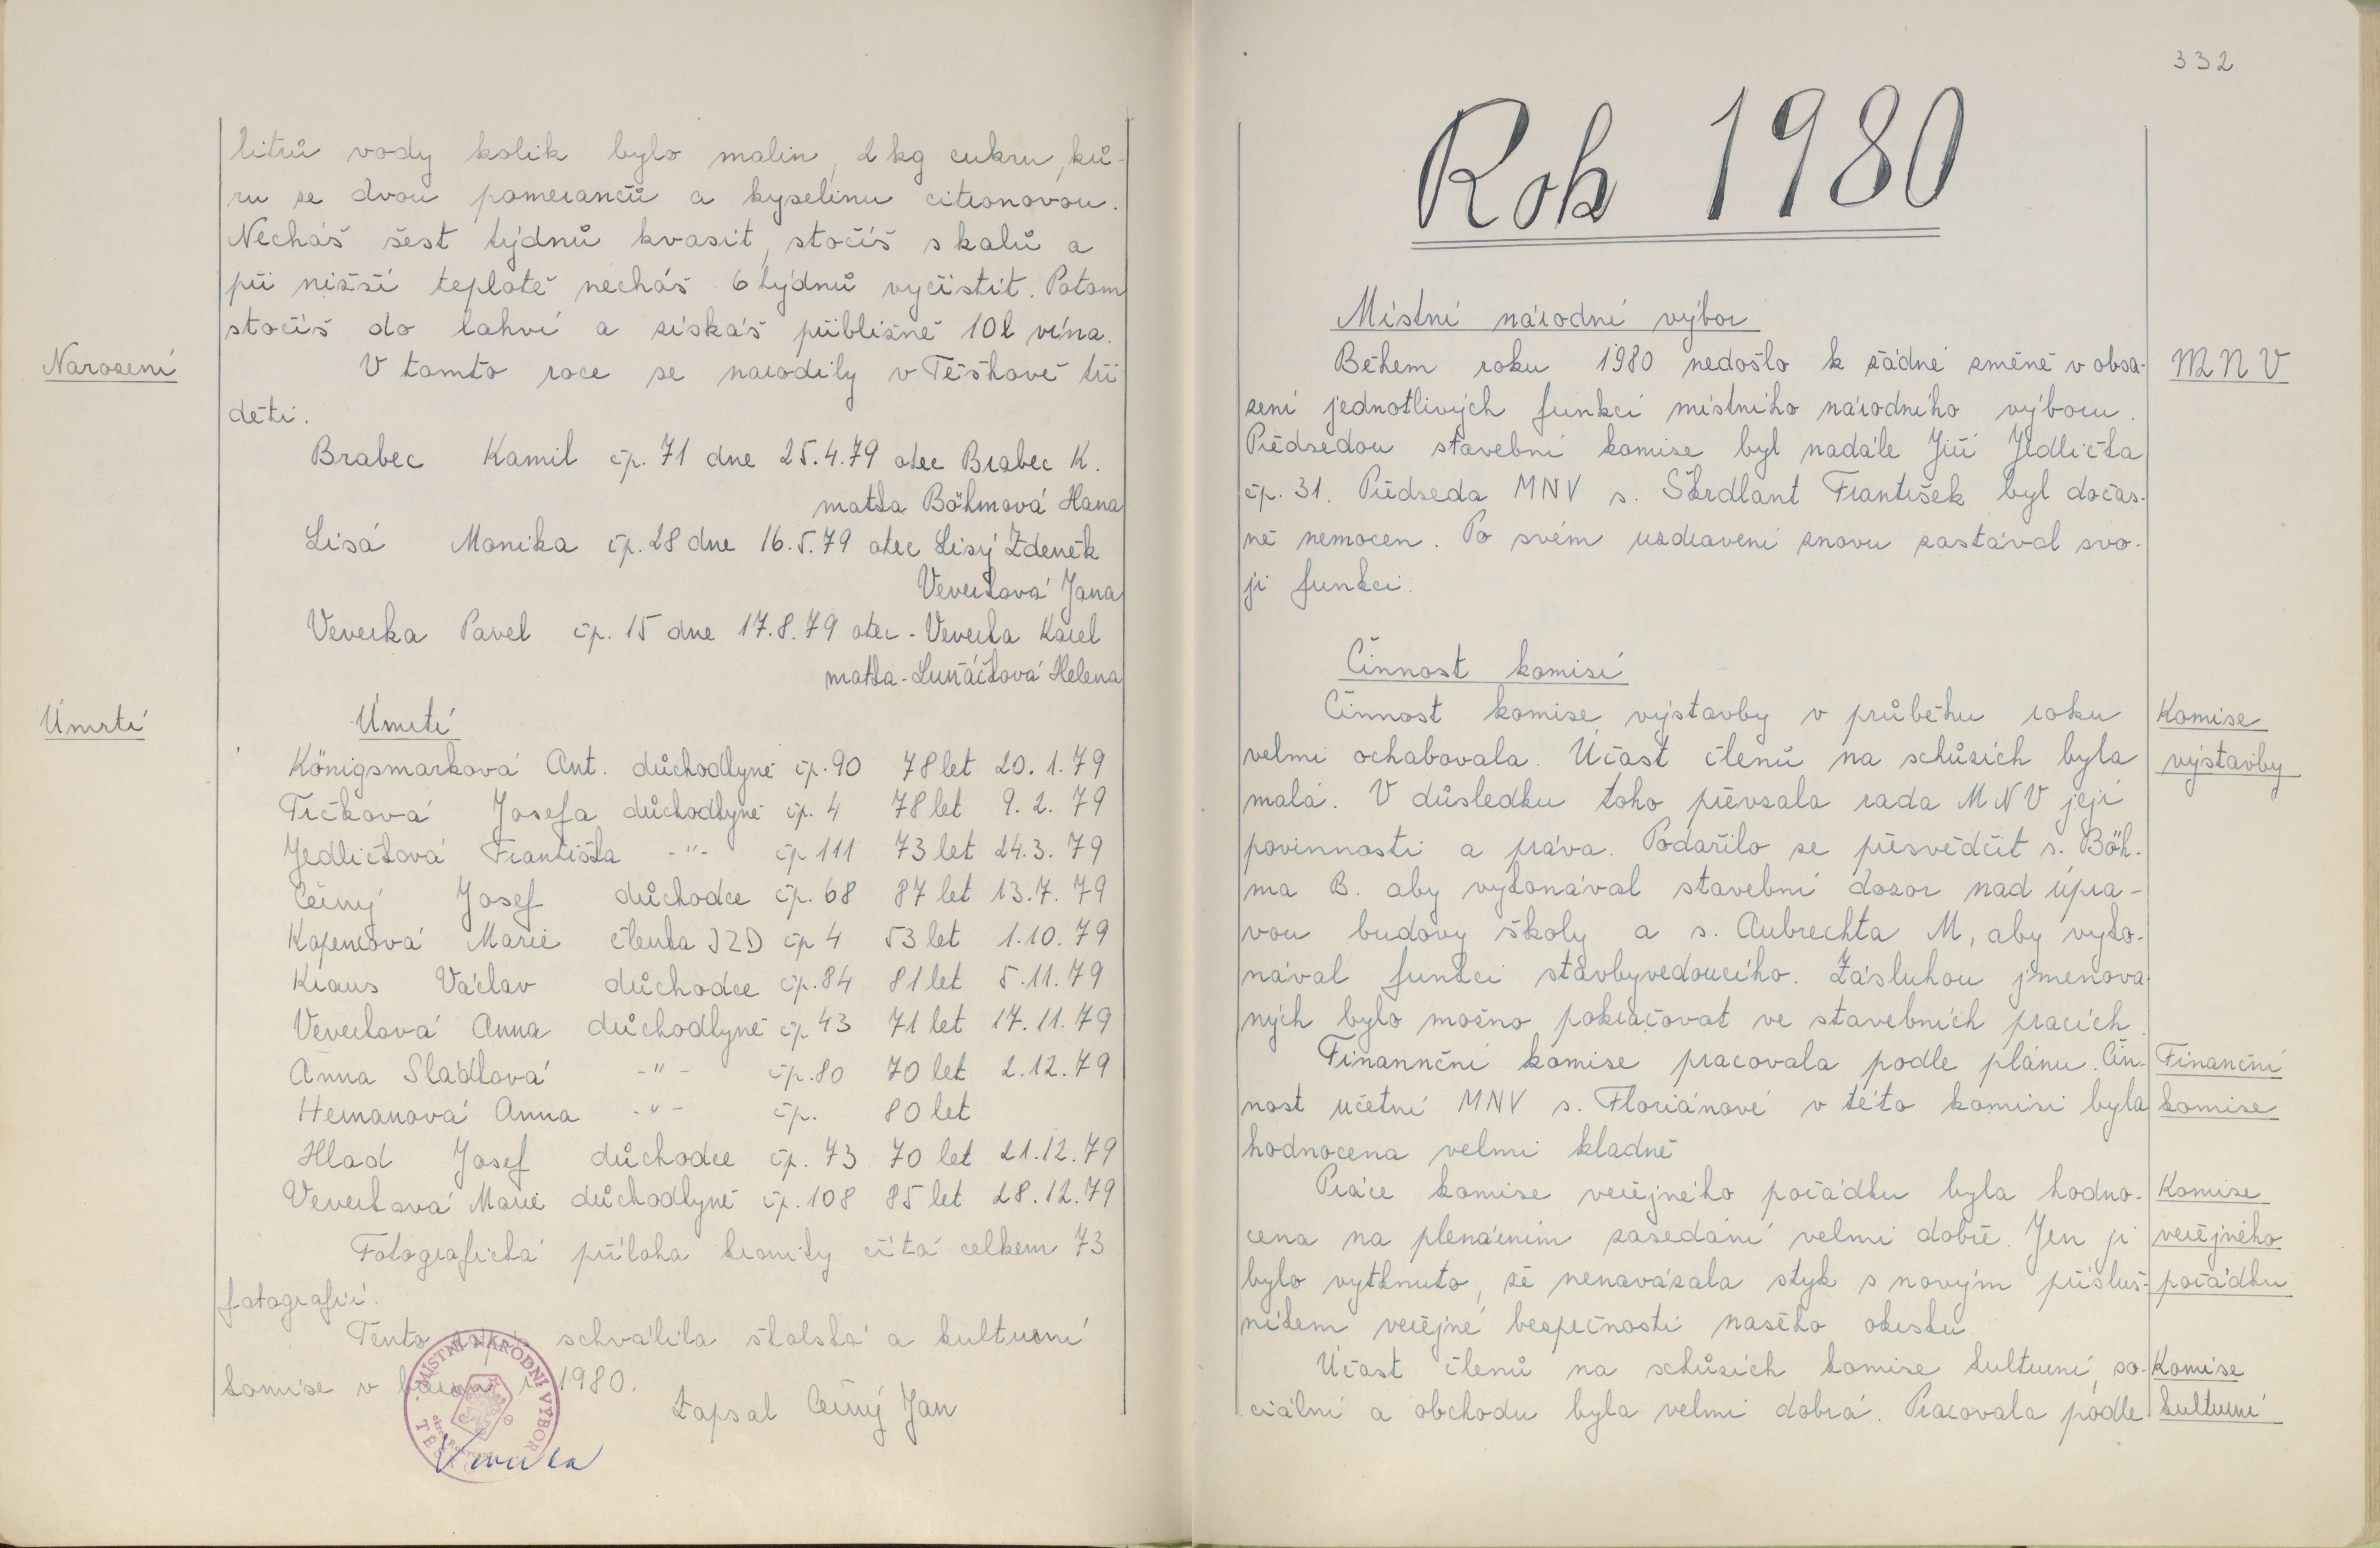 litrů vody kolik bylo malin, 2 kg cukru, ků-
ru se dvou pomerančů a kyselinu citronovou.
Necháš šest týdnů kvasit, stočíš s kalů a
při nižší teplotě necháš 6 týdnů vyčistit. Potom
stočíš do lahví a získáš přibližně 10 l vína.
Narození
V tomto roce se narodily v Těškově tři
děti.
Brabec Kamil čp. 71 dne 25.4.79 otec Brabec K.
matka Böhmová Hana
Lisá Monika čp. 28 dne 16.5.79 otec Lisý Zdeněk
Veverková Jana
Veverka Pavel čp. 15 dne 17.8.79 otec - Veverka Karel
matka - Luňáčková Helena
Úmrtí
Úmrtí
Königsmarková Ant. důchodkyně čp. 90 78 let 20.1.79
Tičková Josefa důchodkyně čp. 4 78 let 9.2.79
Jedličková Františka -"- čp 111 73 let 24.3.79
Černý Josef důchodce čp. 68 87 let 13.7.79
Marie členka JZD čp 4 53 let 1.10.79
Kraus Václav důchodce čp. 84 81 let 5.11.79
Veverková Anna důchodkyně čp 43 71 let 17.11.79
Anna Sládková -"- čp. 80 70 let 2.12.79
Heřmanová Anna -"- čp. 80 let
Hlad Josef důchodce čp. 73 70 let 21.12.79
Veverková Marie důchodkyně čp. 108 85 let 28.12.79
Fotografická příloha kroniky čítá celkem 73
fotografií.
Tento schválila školská a kulturní
komise v r. 1980.
Zapsal Černý Jan
MÍSTNÍ NÁRODNÍ VÝBOR
Veverka
332
Rok 1980
Místní národní výbor
Během roku 1980 nedošlo k žádné změně v obsa-
MNV
zení jednotlivých funkcí místního národního výboru.
Předsedou stavební komise byl nadále Jiří Jedlička
čp. 31. Předseda MNV s. Škrdlant František byl dočas-
ně nemocen. Po svém uzdravení znovu zastával svo-
ji funkci.
Činnost komisí
Činnost komise výstavby v průběhu roku
Komise
velmi ochabovala. Účast členů na schůzích byla
výstavby
malá. V důsledku toho převzala rada MNV její
povinnosti a práva. Podařilo se přesvědčit s. Böh-
ma B. aby vykonával stavební dozor nad úpra-
vou budovy školy a s. Aubrechta M, aby vyko-
nával funkci stavbyvedoucího. Zásluhou jmenova
ných bylo možno pokračovat ve stavebních pracích.
Finannční komise pracovala podle plánu. Čin-
Finanční
nost účetní MNV s. Floriánové v této komisi byla
komise
hodnocena velmi kladně
Práce komise veřejného pořádku byla hodno-
Komise
cena na plenárním zasedání velmi dobře. Jen jí
veřejného
bylo vytknuto, že nenavázala styk s novým přísluš-
pořádku
níkem veřejné bezpečnosti našeho okrsku.
Účast členů na schůzích komise kulturní, so-
Komise
ciální a obchodu byla velmi dobrá. Pracovala podle
kulturní